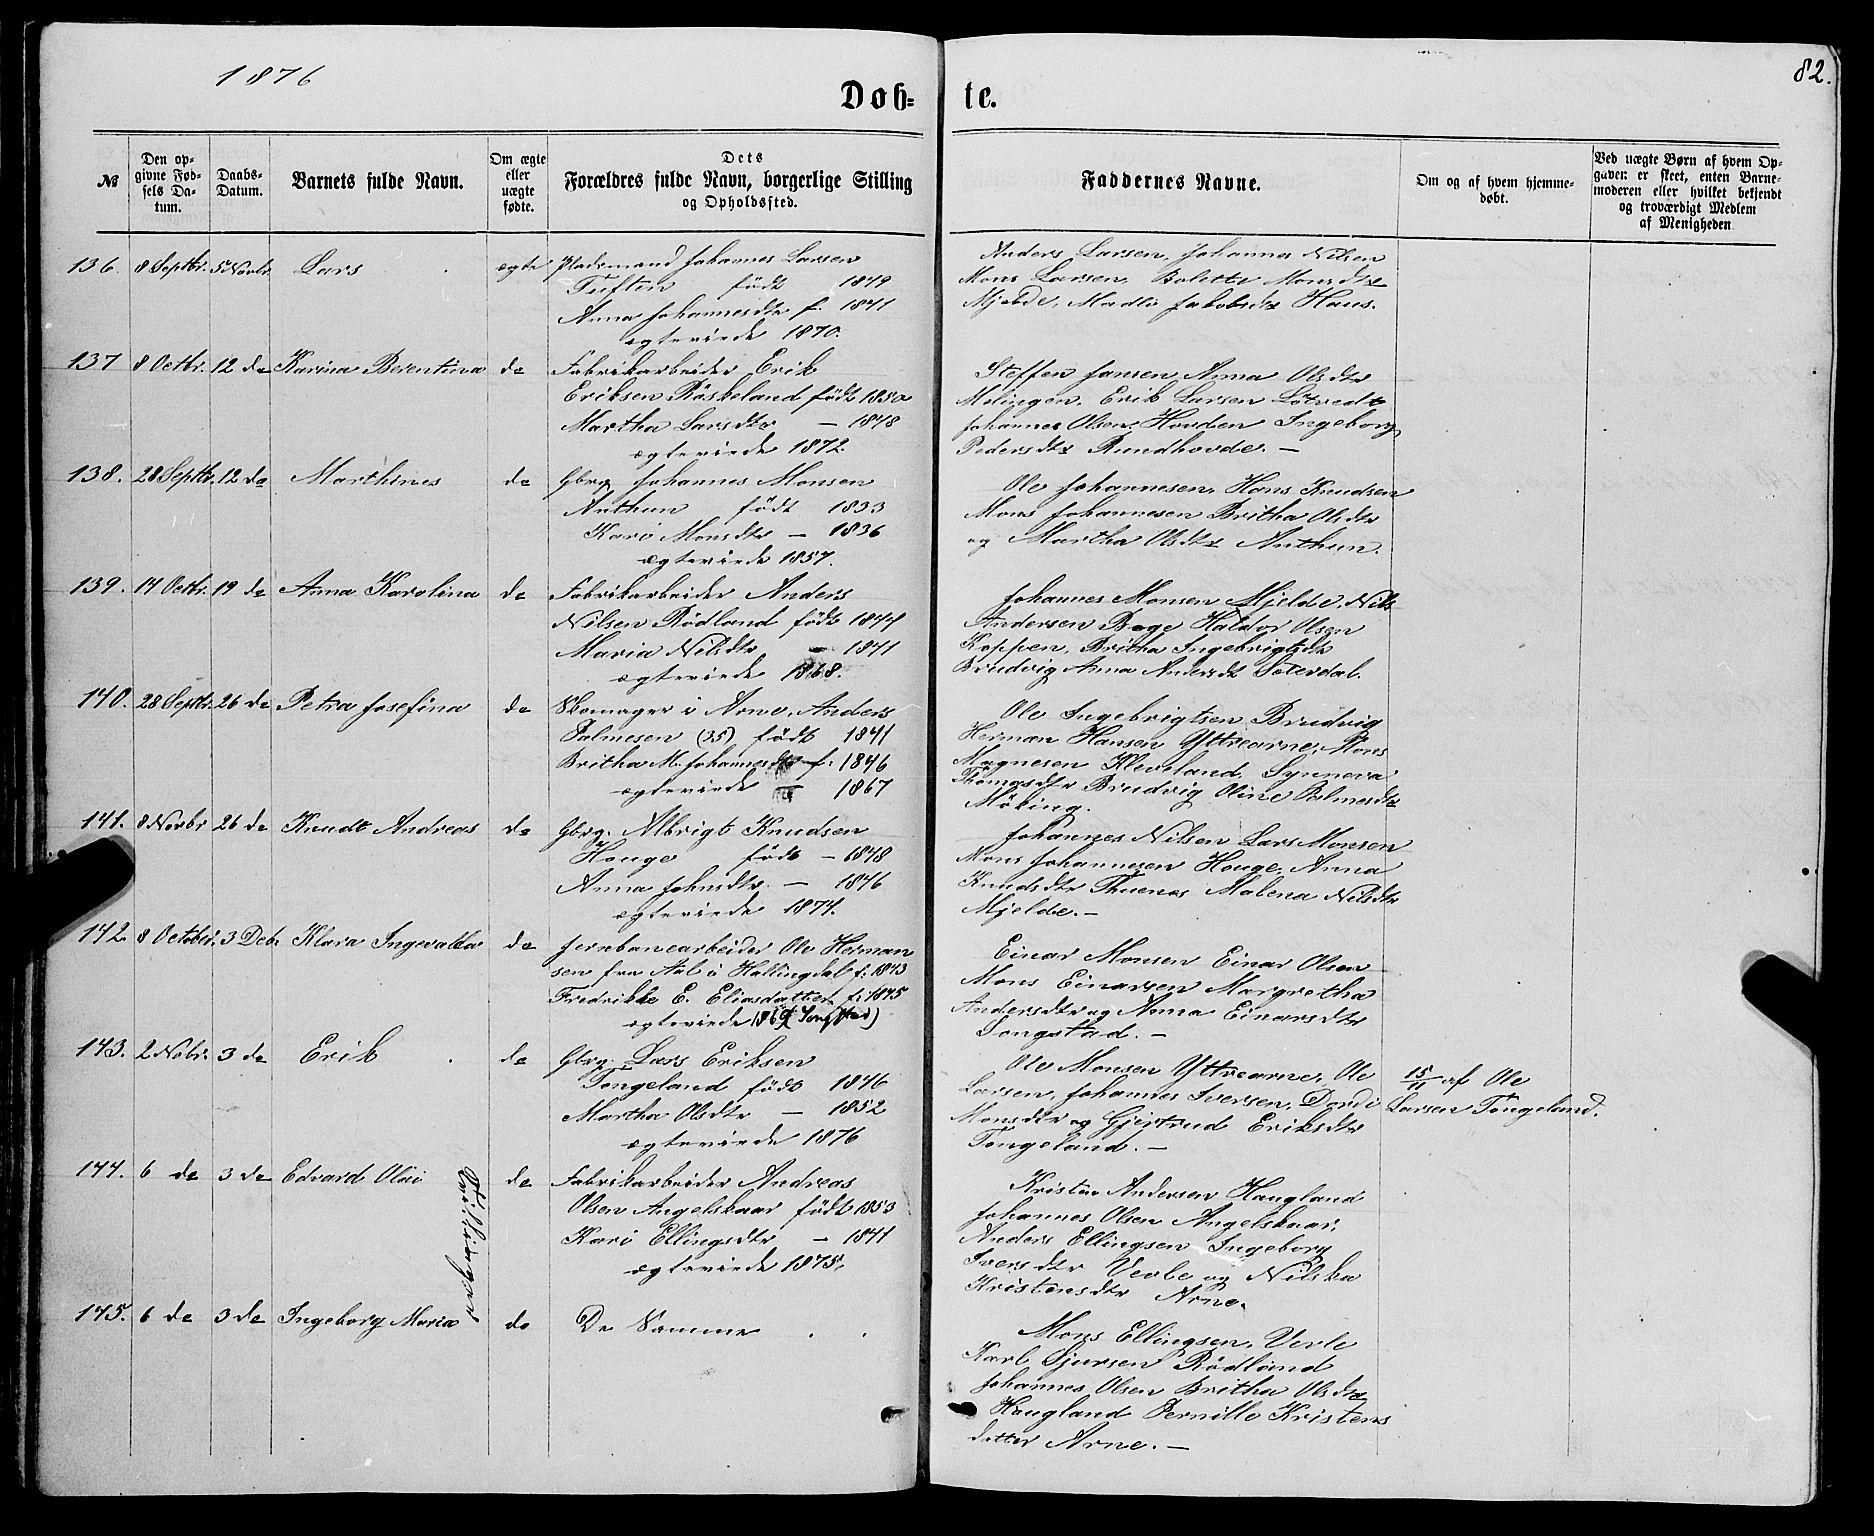 1876
82.
Døb= te.
№
Den op-
givne Fød-
sels Da-
tum.
Daabs-
Datum.
Barnets fulde Navn.
Om ægte
eller
uægte
fødte.
Dets
Forældres fulde Navn, borgerlige Stilling
og Opholdssted.
Faddernes Navne.
Om og af hvem hjemme-
døbt.
Ved uægte Børn af hvem Op-
gaven er skeet, enten Barne-
moderen eller hvilket bekjendt
og troværdigt Medlem
af Menigheden
136. 8 Septbr. 5 Novbr. Lars ægte Pladsmand Johannes Larsen
Tuften født 1849
Anna Johannesdtr f. 1841
ægteviede 1870.
Anders Larsen, Johannes Nilsen
Mons Larsen, Bolette Monsdtr
Mjelde, Madli Jakobsdtr Haus.
137 8 Octbr. 12 do Karina Berentina do Fabrikarbeider Erik
Eriksen Röskeland født 1850
Martha Larsdtr — 1848
ægteviede 1872.
Steffen Jansen, Anna Olsdtr
Melingen, Erik Larsen Løtvedt
Johannes Olsen Hovden Ingeborg
Pedersdtr Rundhovde. —
138. 28 Septbr. 12 do Marthines do Gbrg Johannes Monsen
Anthun født 1833
Kari Monsdtr — 1836
ægteviede 1857.
Ole Johannesen, Hans Knudsen
Mons Johannesen Britha Olsdtr
og Martha Olsdtr Anthun.
139. 14 Octbr. 19 do Anna Karolina do Fabrikarbeider Anders
Nilsen Rödland født 1844
Maria Nilsdtr — 1841
ægteviede 1868.
Johannes Monsen Mjelde, Nils
Andersen Boge Haldor Olsen
Koppen, Britha Ingebrigtsdtr
Brudvig Anna Andersdtr Søterdal.
140. 28 Septbr. 26 do Petra Josefina do Skomager i Arne, Anders
Palmesen (35) født 1841
Britha M. Johannesdtr f. 1846
ægteviede — 1867
Ole Ingebrigtsen Brudvig
Herman Hansen Yttrearne, Mons
Magnesen Kleveland, Synneva
Thomasdtr Brudvig Oline Palmesdtr
Möking.
141. 8 Novbr 26 do Knudt Andreas do Gbrg. Albrigt Knudsen
Houge født — 1848
Anna Johnsdtr. — 1846
ægteviede 1874.
Johannes Nilsen Lars Monsen
Mons Johannesen Houge, Anna
Knudsdtr Thunes Malena Nilsdtr
Mjelde. —
142. 8 October. 3 Deb. Klara Ingevalda do Jernbanearbeider Ole Herman
sen fra Aal i Hallingdal f: 1843
Fredrikke E. Eliasdatter f: 1845
ægteviede 1869 Songstad)
Einar Monsen Einar Olsen
Mons Einarsen Margretha
Andersdtr og Anna Einarsdtr
Songstad. —
143. 2 Nobr. 3 do Erik do Gbrg. Lars Eriksen
Tongeland født 1846
Martha Olsdtr — 1852
ægteviede 1876
Ole Monsen Yttrearne, Ole
Larsen, Johannes Iversen, Dordi
Monsdtr og Gjertrud Eriksdtr
Tongeland. —
15/11 af Ole
Larsen Tongeland.
144. 6 do 3 do Edvard Olai do Fabrikarbeider Andreas
Olsen Angelskaar født 1853
Kari Ellingsdtr — 1841
ægteviede 1875.
Kristen Andersen Haugland
Johannes Olsen Angelskaar,
Anders Ellingsen Ingeborg
Iversdtr Verle og Nilska
Kristensdtr Arne.
Tvillinger
145. 6 do 3 do Ingeborg Maria do De Samme
Mons Ellingsen, Verle
Karl Sjursen Rödland
Johannes Olsen Britha Olsdtr
Haugland Pernille Kristens
datter Arne. —